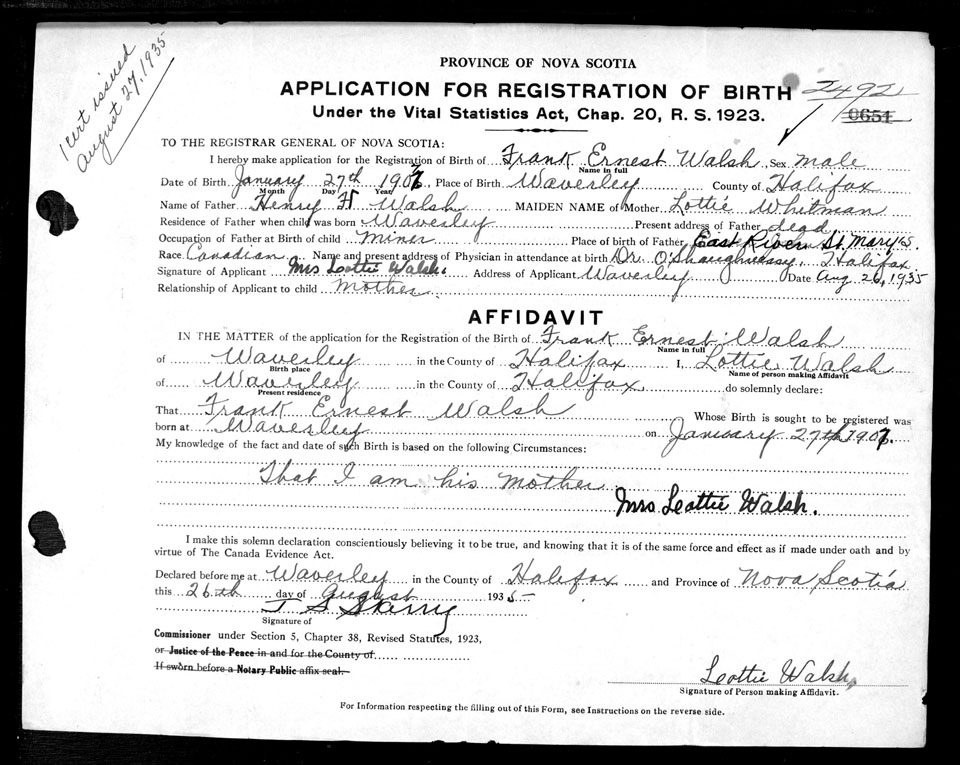 1 Cert issued
August 27, 1935
PROVINCE OF NOVA SCOTIA
APPLICATION FOR REGISTRATION OF BIRTH 2492
Under the Vital Statistics Act, Chap. 20, R. S. 1923. 0651
TO THE REGISTRAR GENERAL OF NOVA SCOTIA:
I hereby make application for the Registration of Birth of Frank Ernest Walsh, Sex male
Name in full
Date of Birth January 27th 1907, Place of Birth Waverley County of Halifax
Month Day Year
Name of Father Henry H Walsh MAIDEN NAME of Mother Lottie Whitman
Residence of Father when child was born Waverley Present address of Father dead
Occupation of Father at Birth of child miner Place of birth of Father East River St. Mary's.
Race Canadian Name and present address of Physician in attendance at birth Dr. O'Shaughnessy, Halifax
Signature of Applicant Mrs Leottie Walsh. Address of Applicant Waverley Date Aug 26, 1935
Relationship of Applicant to child Mother
AFFIDAVIT
IN THE MATTER of the application for the Registration of the Birth of Frank Ernest Walsh
Name in full
of Waverley in the County of Halifax I, Lottie Walsh
Birth place Name of person making Affidavit
of Waverley in the County of Halifax do solemnly declare:
Present residence
That Frank Ernest Walsh Whose Birth is sought to be registered was
born at Waverley on January 27th 1907.
My knowledge of the fact and date of such Birth is based on the following Circumstances:
That I am his Mother
Mrs Leottie Walsh.
I make this solemn declaration conscientiously believing it to be true, and knowing that it is of the same force and effect as if made under oath and by
virtue of The Canada Evidence Act.
Declared before me at Waverley in the County of Halifax and Province of Nova Scotia
this 26th day of August 1935
T S
Signature of
Commissioner under Section 5, Chapter 38, Revised Statutes, 1923,
or Justice of the Peace in and for the County of
If sworn before a Notary Public affix seal.
Leottie Walsh
Signature of Person making Affidavit.
For Information respecting the filling out of this Form, see Instructions on the reverse side.